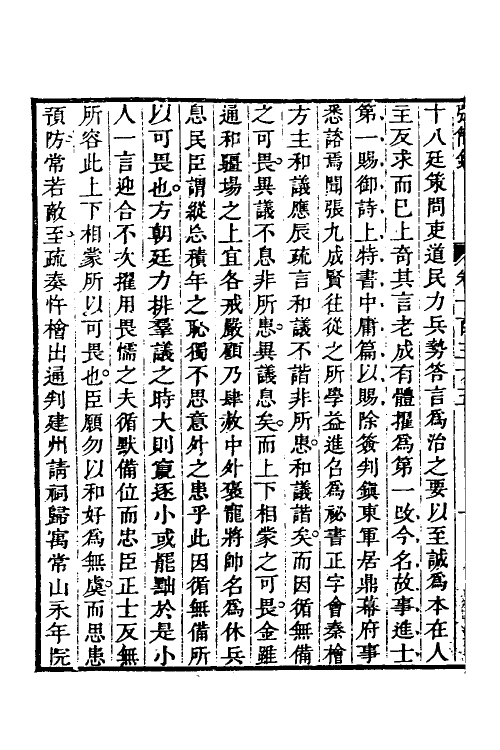 十八廷策問吏道民力兵勢答言爲治之要以至誠爲本在人
主反求而巳上奇其言老成有體擢爲第一改今名故事進士
第一賜御詩上特書中庸篇以賜除簽判鎭東軍居鼎幕府事
悉諮焉聞張九成賢往從之所學益進召爲祕書正字會秦檜
方主和議應辰疏言和議不諧非所患和議諧矣而因循無備
之可畏異議不息非所患異議息矣而上下相蒙之可畏金雖
通和疆場之上宜各戒嚴顧乃肆赦中外褒寵將帥名爲休兵
息民臣謂縱忘積年之恥獨不思意外之患乎此因循無備所
以可畏也方朝廷力排羣議之時大則竄逐小或罷黜於是小
人一言迎合不次擢用畏懦之夫循默備位而忠臣正士反無
所容此上下相蒙所以可畏也臣願勿以和好爲無虞而思患
預防常若敵至疏奏忤檜出通判建州請祠歸寓常山永年院